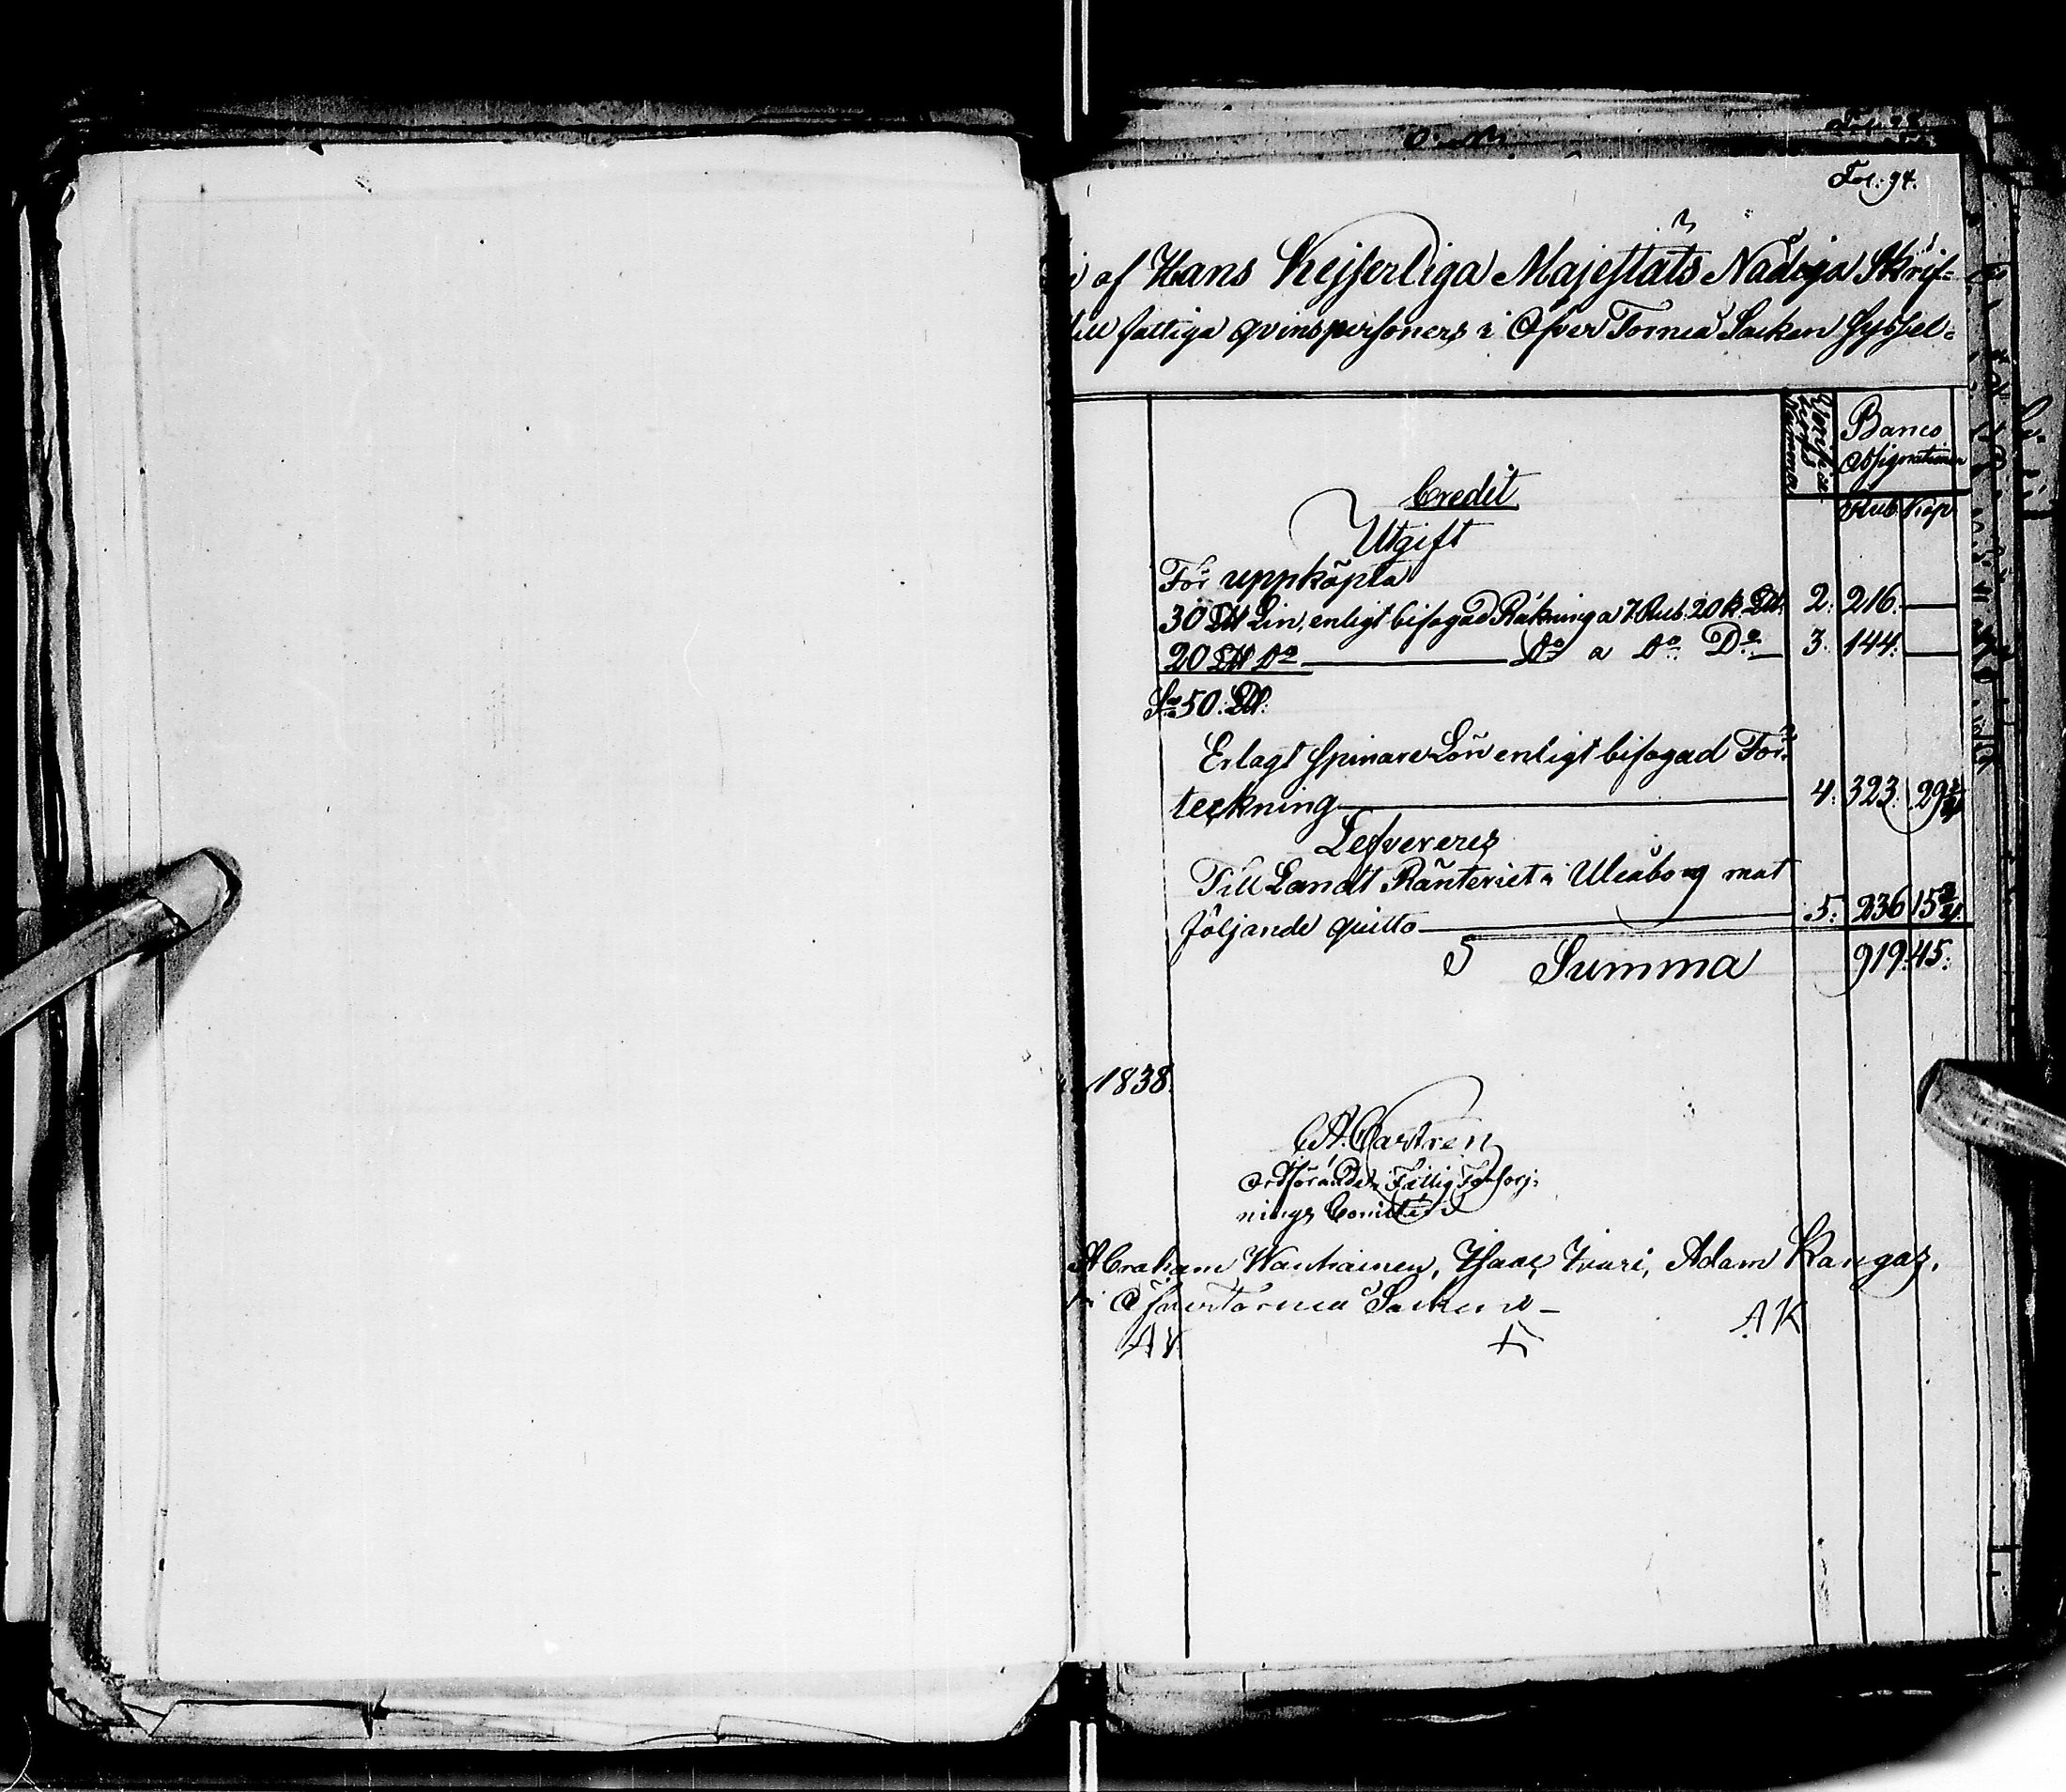 Fol: 94.
af Hans Kejserliga Majestäts Nådiga Skrif=
till fattiga qvinspersoners i Öfver Torneå Socken syssel=
Verifica
tions
Nummer
Banco
Assignationer
Rub Kop
Credit
Utgift
För uppköpta
30 LH Lin, enligt bifogad Räkning a 7 Rub. 20 k. LH. 2. 216. —
20 LH Do — Do a Do Do — 3. 144. —
Sa 50. LH.
Erlagt spinare Lön enligt bifogad För=
teckning — 4. 323. 29 1/4
Lefvereres
Till Landt Ränteriet i Uleåborg mot
följande quitto — 5. 236 15 3/4
Summa 919. 45.
1838.
C A. Castren
Ordförande i Fattig Försörj=
nings Comitéen
Abraham Wanhainen, Isaac Iuuri, Adam Kangas,
i Öfvertorneå Socken —
AV AK